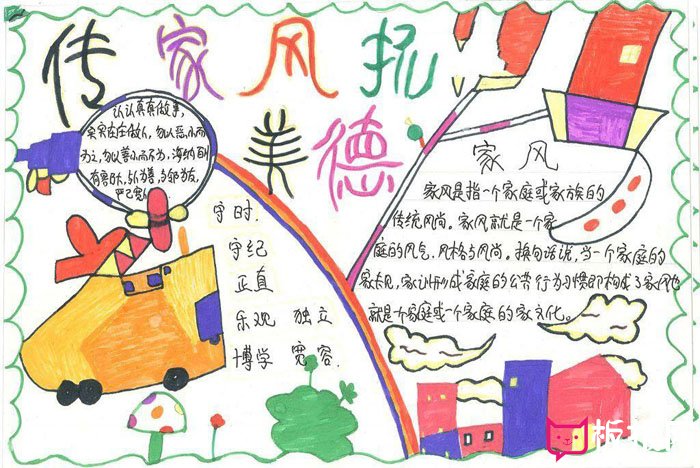 传家风扬
美德
认认真真做事,
实实在在做人,勿以恶小而
为之,勿以善小而不为,海纳百川
有容乃大,与人为善,与邻为友,
严己宽人
守时.
守纪
正直
乐观 独立
博学 宽容.
家风
家风是指一个家庭或家族的
传统风尚。家风就是一个家
庭的风气、风格与风尚。换句话说,当一个家庭的
家长 家 形成家庭的 行为习惯即构成了家风也
就是个家庭或一个家庭的家文化。